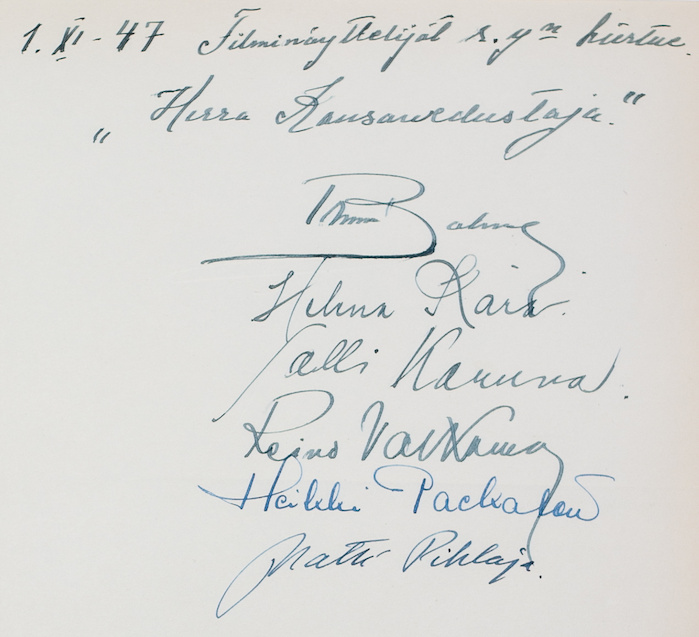 1. XI - 47 Filminäyttelijät r. yⁿ kiertue.
„Herra Kansanedustaja.“
Thure Bahne
Helena Kara.
Salli Karuna.
Reino Valkama
Heikki Packalén
Matti Pihlaja.